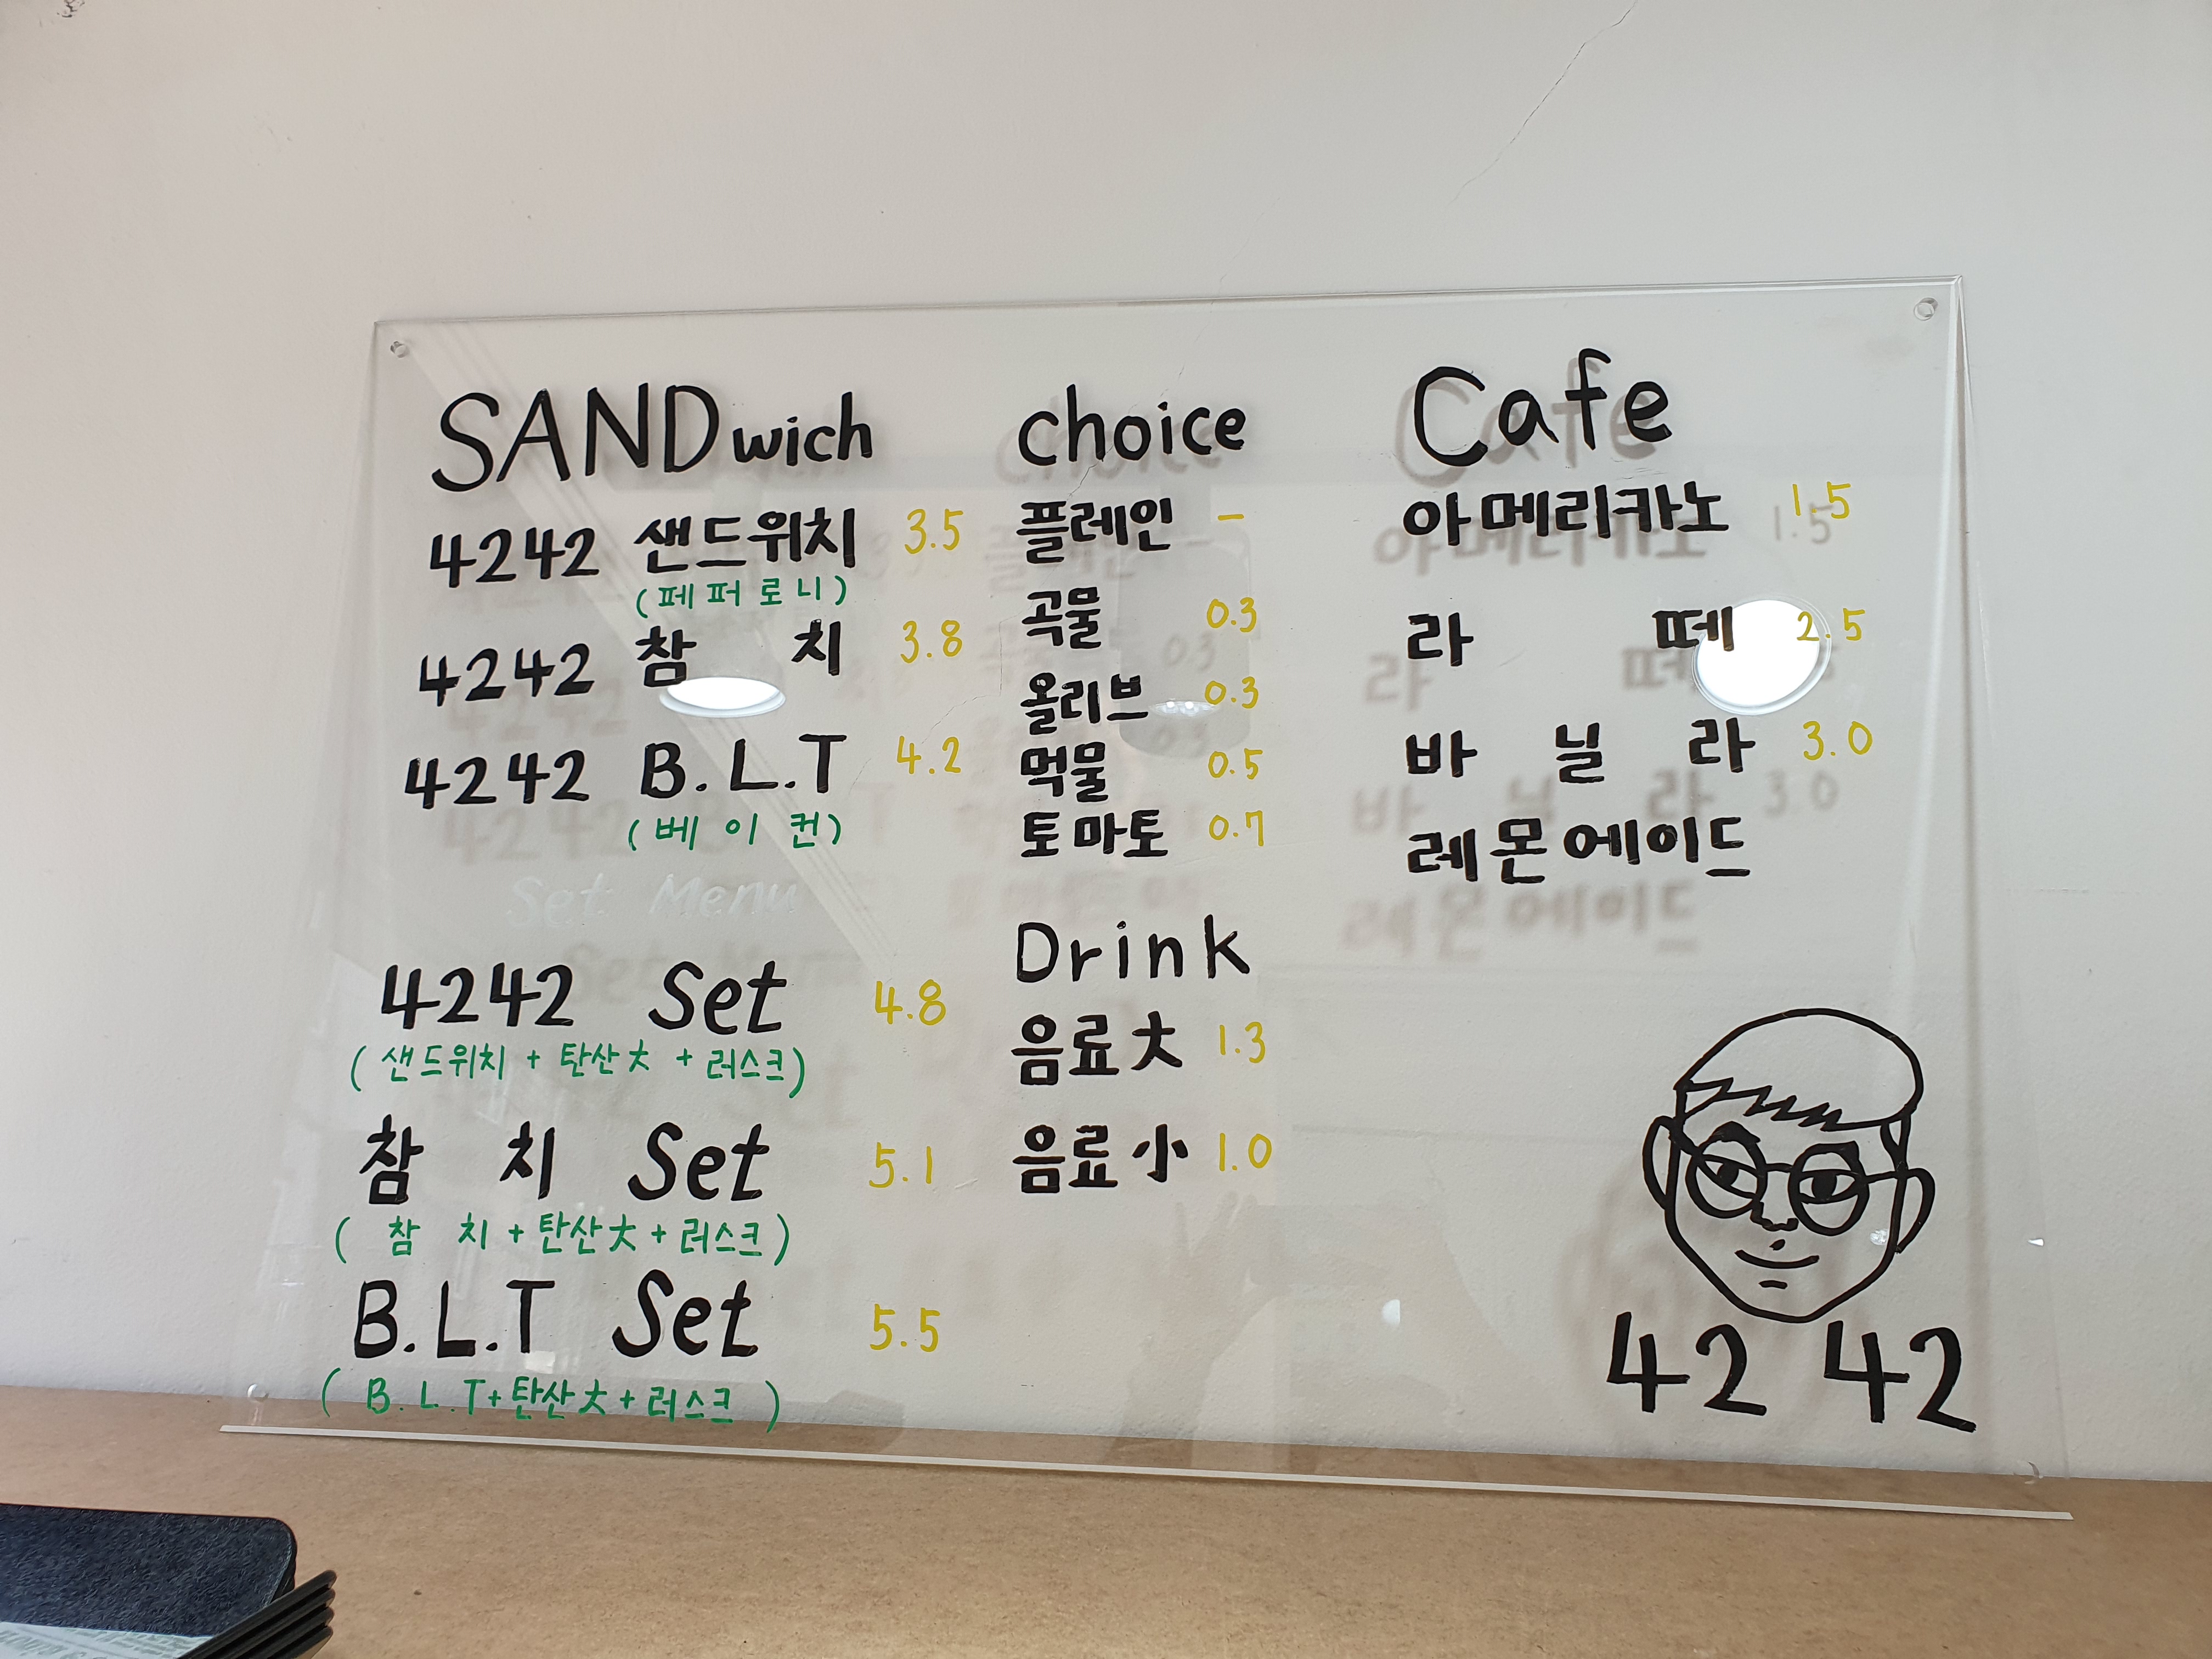 SANDwich
4242 샌드위치 3.5
(페퍼로니)
4242 참 치 3.8
4242 B.L.T 4.2
(베이컨)
Set Menu
4242 Set 4.8
(샌드위치 + 탄산大 + 러스크)
참 치 Set 5.1
(참 치 + 탄산大 + 러스크)
B.L.T Set 5.5
(B.L.T + 탄산大 + 러스크)
choice
플레인 -
곡물 0.3
올리브 0.3
먹물 0.5
토마토 0.7
Drink
음료大 1.3
음료小 1.0
Cafe
아메리카노 1.5
라 떼 2.5
바 닐 라 3.0
레몬에이드
42 42